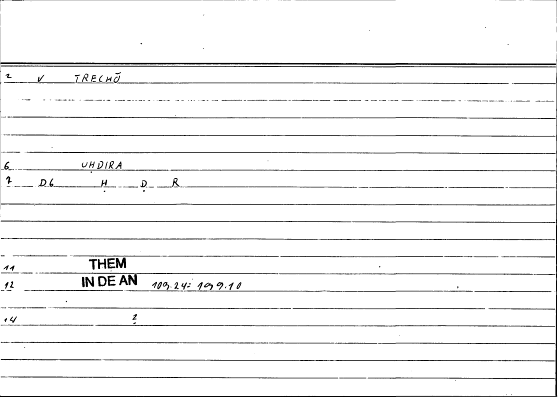 2 V TRECHŌ
6 UḤDIRA
7 D6 Ḥ Ḍ R
11 THEM
12 IN DE AN 109.24: 109.10
14 2